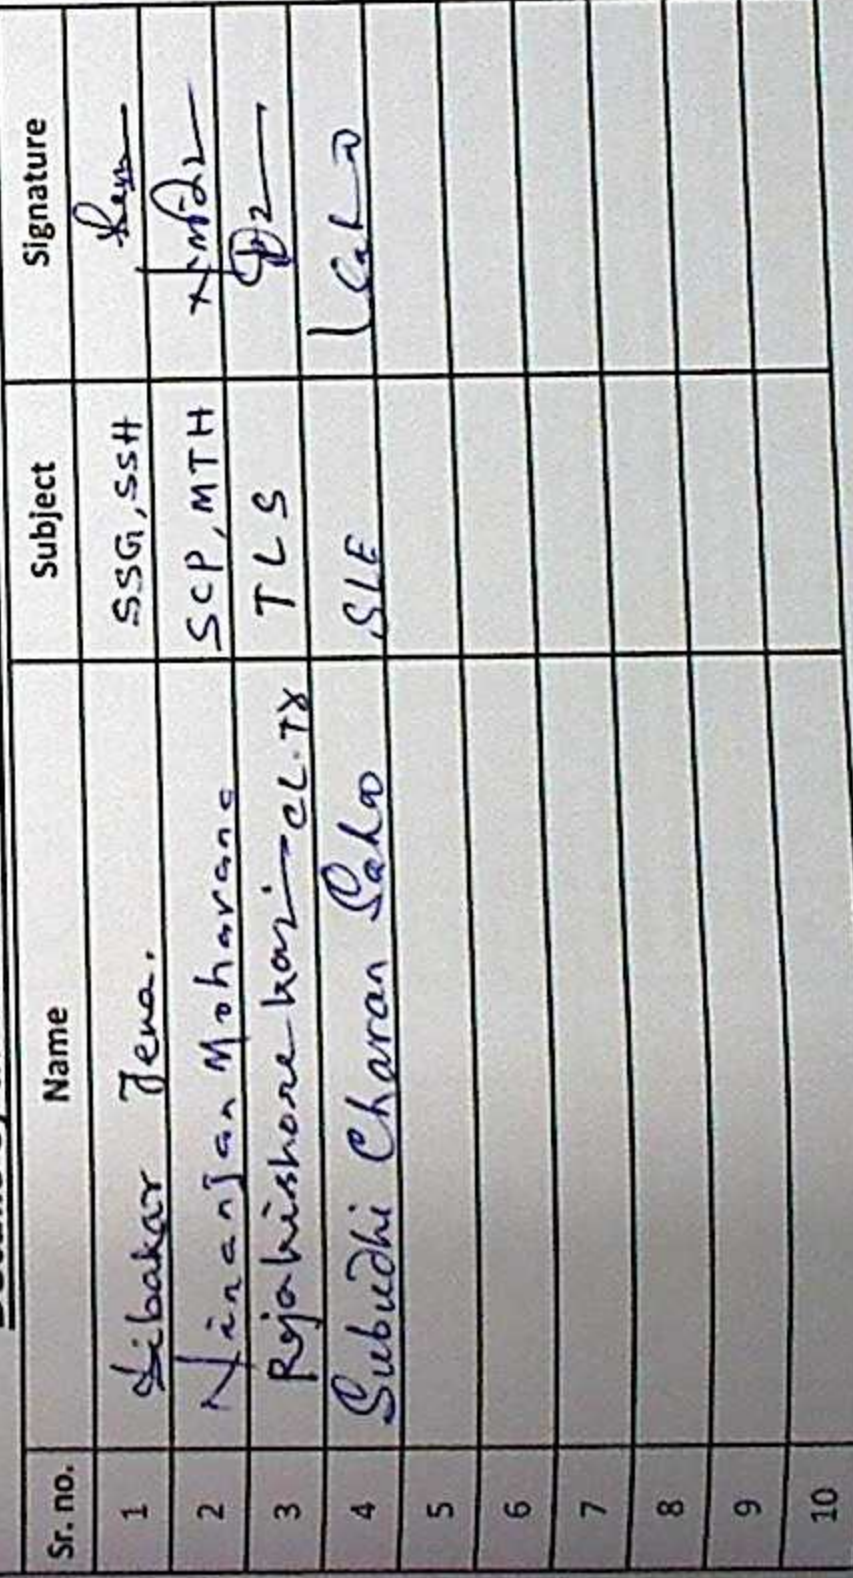 Sr. no. Name Subject Signature
1 Dibakar Jena. SSG, SSH
2 Niranjan Moharana SCP, MTH
3 Rajakishore kar CL.TX TLS
4 Subudhi Charan Sahoo SLE
5
6
7
8
9
10